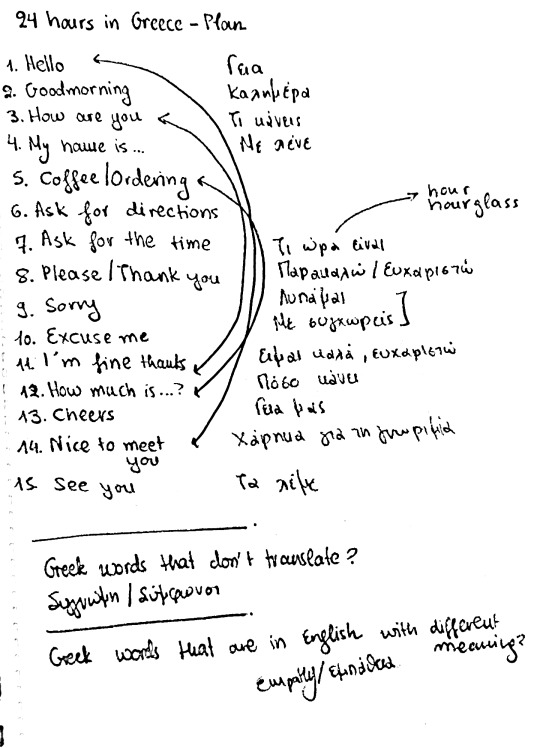 24 hours in Greece - Plan
1. Hello Γεια
2. Goodmorning Καλημέρα
3. How are you Τι κάνεις
4. My name is... Με λένε
5. Coffee/Ordering
hour
hourglass
6. Ask for directions
7. Ask for the time Τι ώρα είναι
8. Please/Thank you Παρακαλώ/Ευχαριστώ
9. Sorry Λυπάμαι
10. Excuse me Με συγχωρείς
11. I'm fine thanks Ειμαι καλά, ευχαριστώ
12. How much is...? Πόσο κάνει
13. Cheers Γεια μας
14. Nice to meet you Χάρηκα για τη γνωριμία
15. See you Τα λέμε
Greek words that don't translate?
Συγγνώμη / Σύμφωνοι
Greek words that are in English with different meaning?
empathy/εμπάθεια